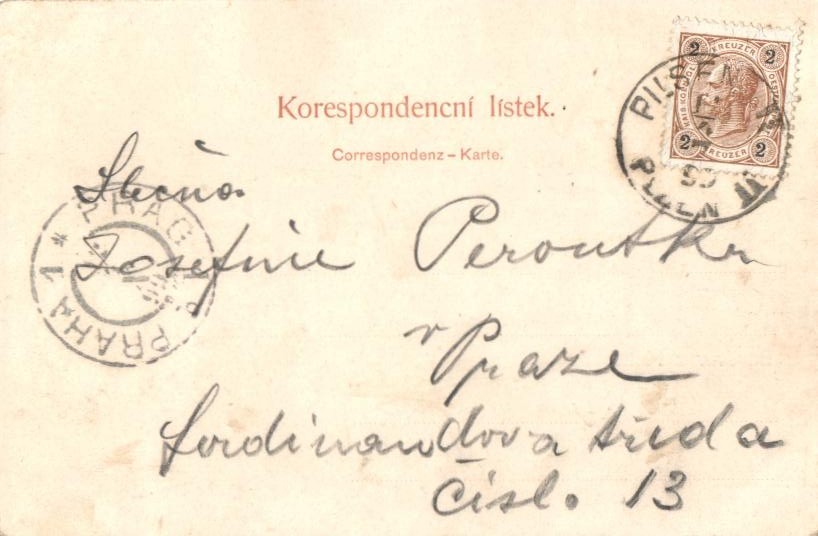 Korespondencní lístek.
Correspondenz-Karte.
2 KREUZER 2
2 KREUZER 2
PILSEN
PLZEŇ
PRAG
PRAHA 1 *
Slečna
Josefine Peroutka
v Praze
Ferdinandova třída
Čísl. 13